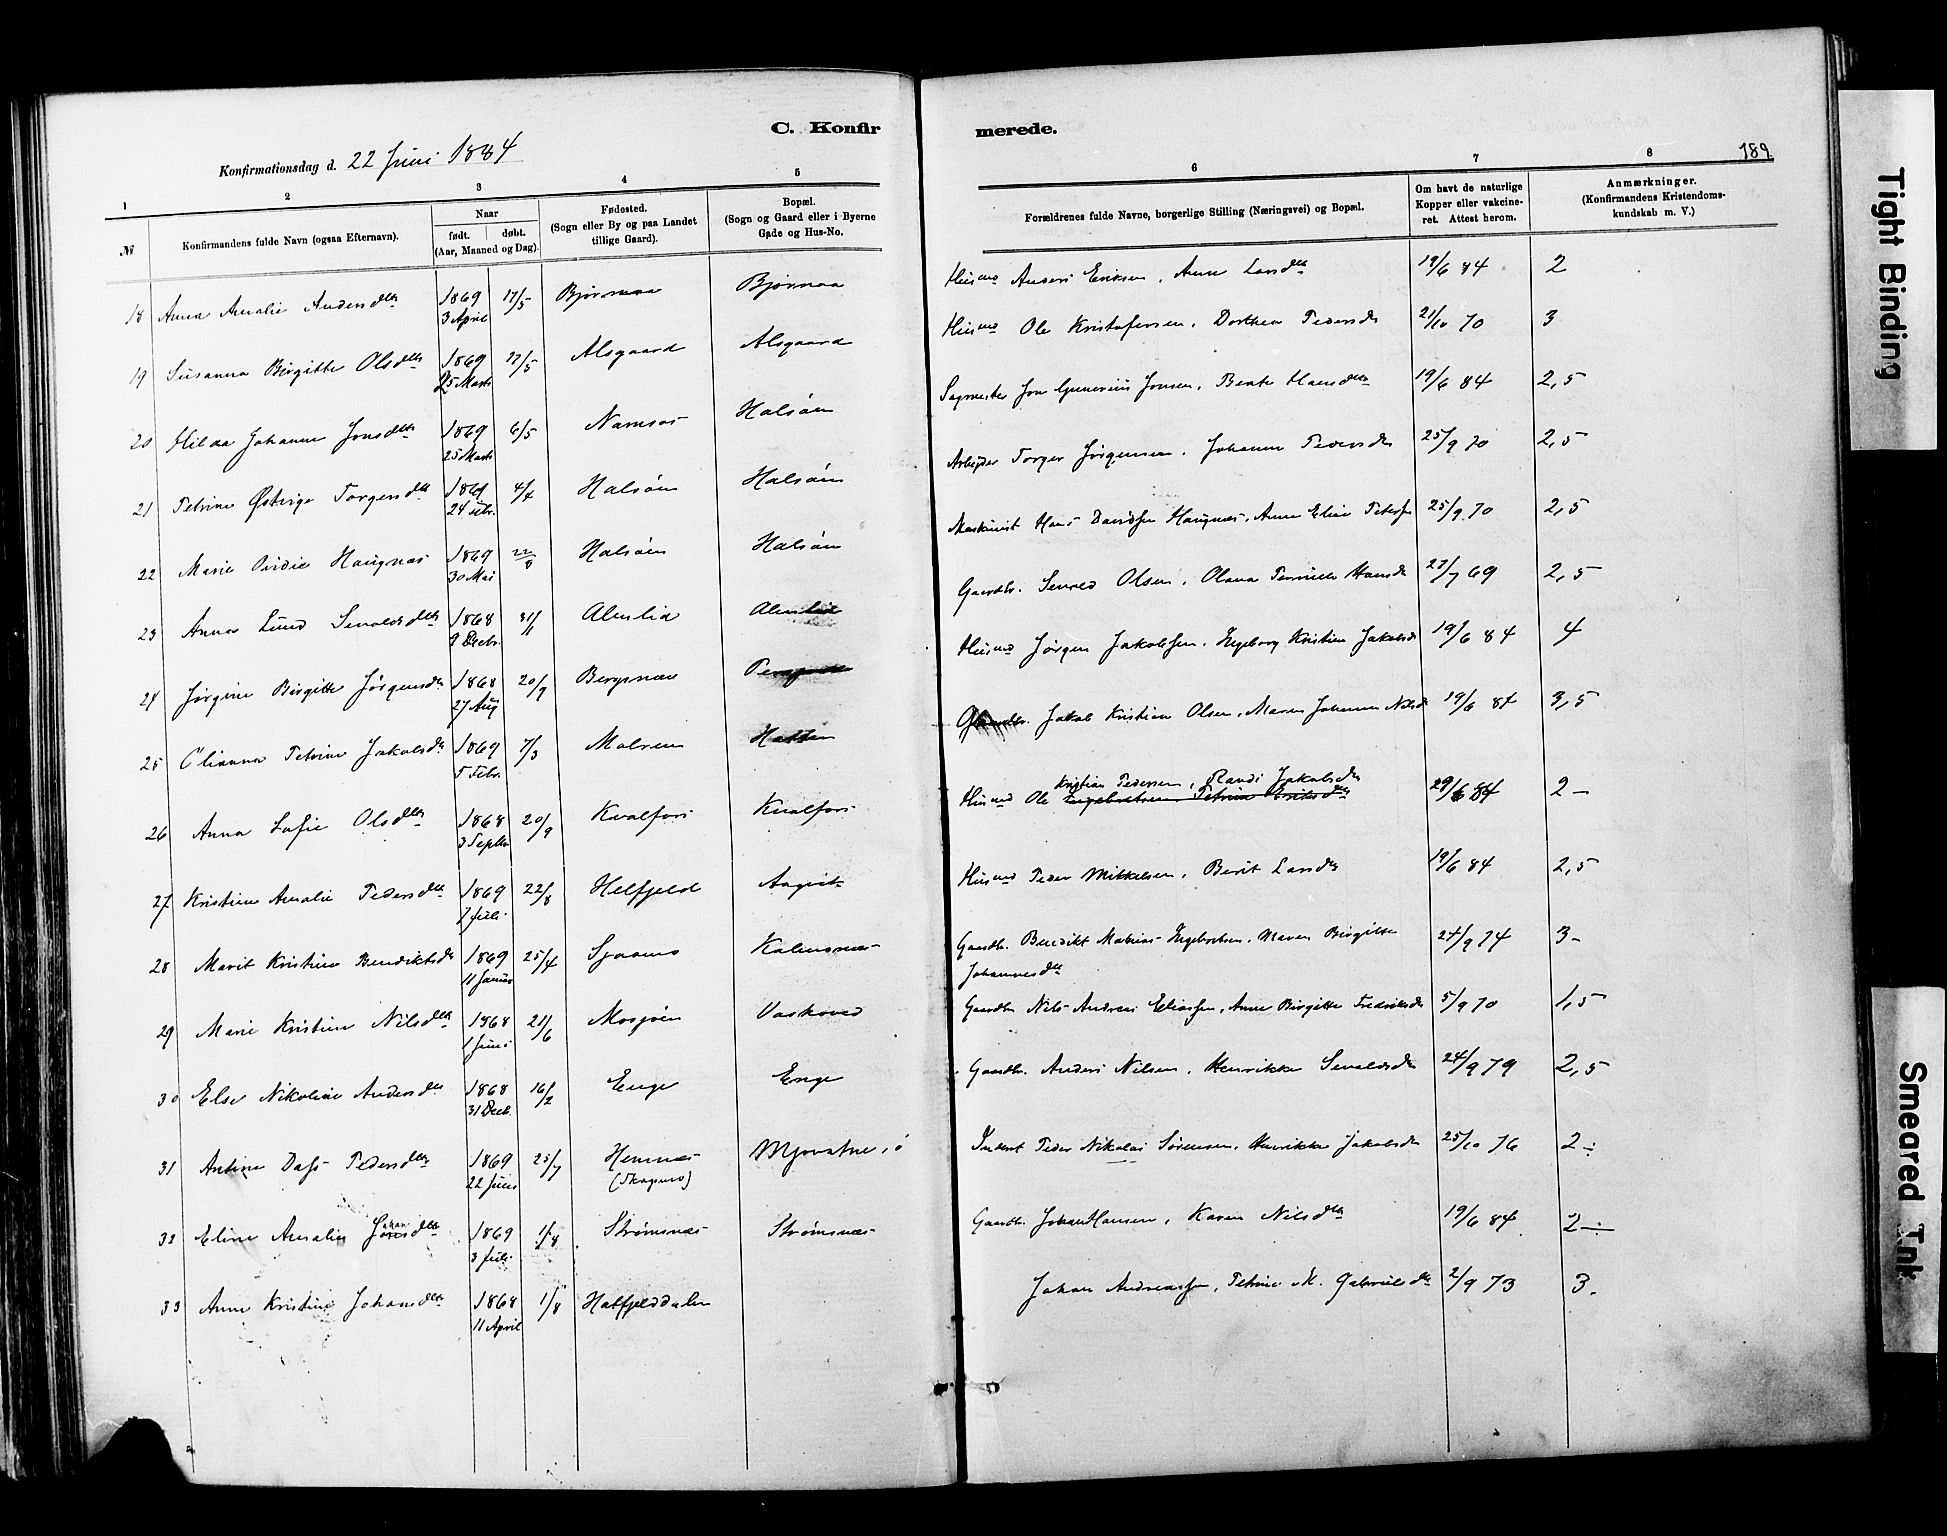 C. Konfir merede.
Konfirmationsdag d. 22 Juni 1884
189
1 2 3 4 5 6 7 8
№ Konfirmandens fulde Navn (ogsaa Efternavn). Naar født. døbt. (Aar, Maaned og Dag). Fødested. (Sogn eller By og paa Landet tillige Gaard). Bopæl. (Sogn og Gaard eller i Byerne Gade og Hus-No. Forældrenes fulde Navne, borgerlige Stilling (Næringsvei) og Bopæl. Om havt de naturlige Kopper eller vakcineret. Attest herom. Anmærkninger. (Konfirmandens Kristendomskundskab m. V.)
18 Anna Amalie Andersdtr 1869 3 April 17/5 Bjørnaa Bjørnaa Husmd Anders Eriksen, Ane Larsdtr 19/6 84 2
19 Susanna Birgitte Olsdtr 1869 25 Marts 17/5 Alsgaard Alsgaard Husmd Ole Kristofersen, Dorthea Pedersd 21/10 70 3
20 Hilda Johanne Jonsdtr 1869 25 Marts 6/5 Namsos Halsøen Sagmester Jon Gunerius Jonsen, Berte Hansdtr 19/6 84 2,5
21 Petrine Østvige Torgersdtr 1869 24 Febr. 4/4 Halsøen Halsøen Arbeider Torger Jørgensen, Johanna Pedersd 25/9 70 2,5
22 Marie Haugnæs 1869 30 Mai 22/8 Halsøen Halsøen Maskinist Hans Davidsen Haugnæs, Anne Eline Peters 25/9 70 2,5
23 Anna Lund Sevaldsdtr 1868 9 Decbr. 31/1 Almlid Almlid Gaardbr. Sevald Olsen, Olava Hansd 27/7 69 2,5
24 Jørgine Birgitte Jørgensdtr 1868 27 Aug 20/9 Bergsnæs Husmd Jørgen Jakobsen, Ingeborg Kristine Jakobsd 19/6 84 4
25 Olianna Petrine Jakobsdr 1869 5 Febr. 7/3 Halten Gaardbr. Jakob Kristian Olsen, Maren Johanna Nilsd 19/6 84 3,5
26 Anna Sofie Olsdtr 1868 3 Septbr 20/9 Kvalfors Kvalfors Husmd Ole Kristian Pedersen, Randi Jakobsdr Ingebretsen, Petrine Eriksdtr 29/6 84 2 –
27 Kristine Amalie Pedersdtr 1869 7 Juli 22/8 Helfjeld Husmd Peder Mikkelsen, Berit Larsdr 19/6 84 2,5
28 Marit Kristine Bendiktsdr 1869 11 Januar 25/4 Sjaamo Kalmsnæs Gaardbr. Bendikt Mathias Ingebretsen, Maren Birgitte Johannesdtr 24/9 74 3-
29 Marie Kristine Nilsdtr 1868 1 Juni 21/6 Mosjøen Gaardbr. Nils Andreas Eliassen, Anne Birgitte Fredriksdr 5/9 70 1,5
30 Else Nikoline Andersdr 1868 31 Decb. 16/2 Enge Enge Gaardbr. Anders Nilsen, Henrikke Sevaldsdr 24/9 79 2,5
31 Antine Dass Pedersdtr 1869 22 Juni 25/7 Hemnæs Inderst Peder Nikolai Sørensen, Henrikke Jakobsdr 25/10 76 2 ÷
32 Eline Amalie Johansdtr 1869 3 Juli 1/8 Strømsnæs Strømsnæs Gaardbr. Johan Hansen, Karen Nilsdtr 19/6 84 2 ÷
33 Anne Kristine Johansdtr 1868 11 April 1/8 Hatfjelddalen Johan Andreassen, Petrine M. Gabrielsdtr 2/9 73 3.
Tight Binding
Smeared Ink